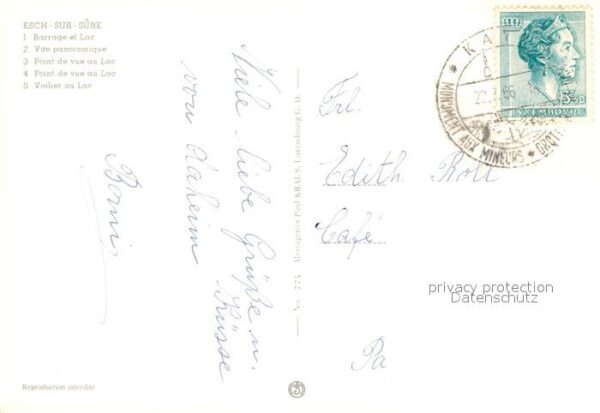 ESCH-SUR-SÛRE
1 Barrage et Lac
2 Vue panoramique
3 Point de vue au Lac
4 Point de vue au Lac
5 Voilier au Lac
Viele liebe Grüße u.
Küsse
von daheim
Bonni
No. 775 - Messageries Paul KRAUS, Luxembourg G. D.
LUXEMBOURG
MONUMENT AUX MINEURS
KA
Frl.
Edith Roll
Café
Pa
privacy protection
Datenschutz
Reproduction interdite